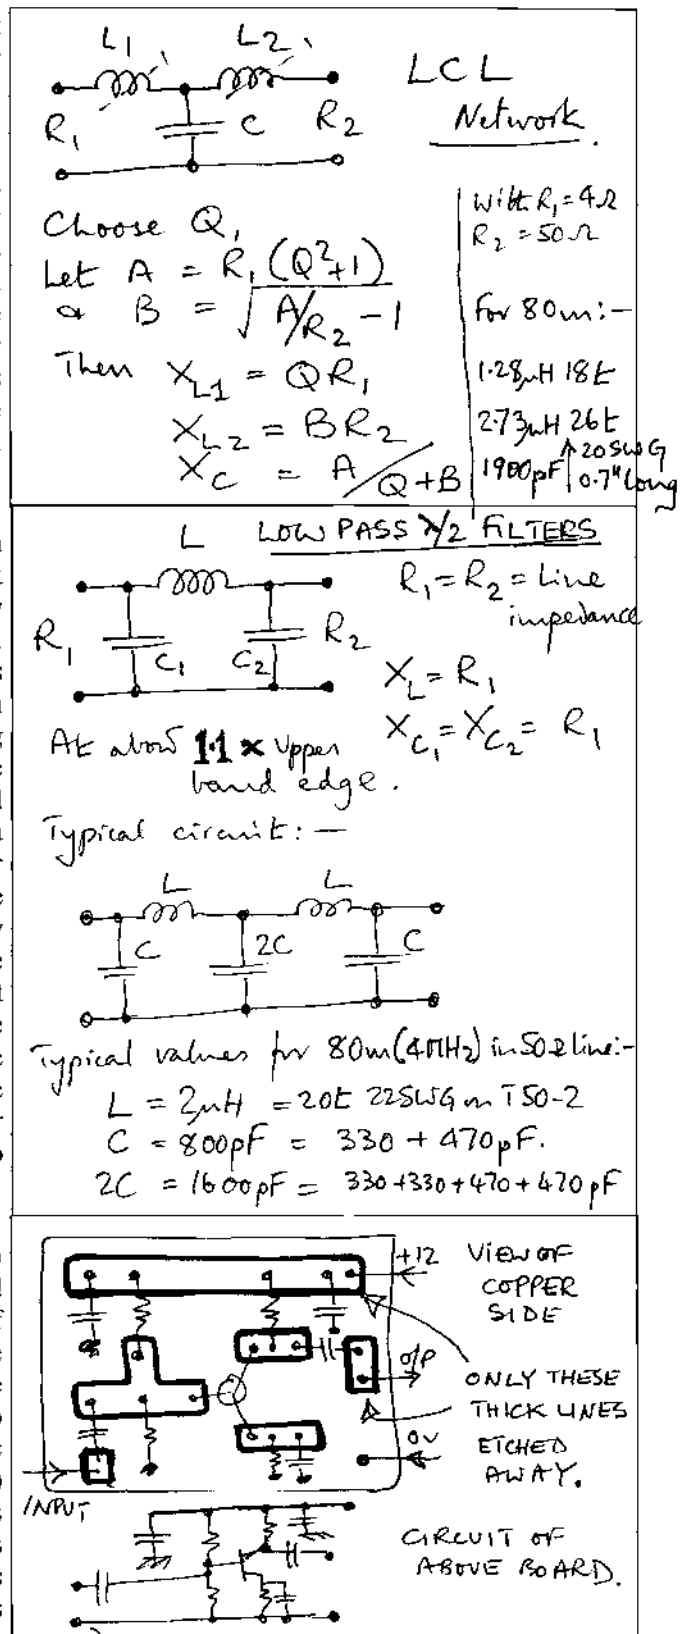 L1 L2
LCL
Network.
R1 C R2
With R1 = 4Ω
R2 = 50Ω
Choose Q,
Let A = R1 (Q²+1)
& B = √A/R2 - 1
For 80m:-
Then XL1 = QR1
1.28μH 18t
XL2 = BR2
2.73μH 26t
XC = A/Q+B
1900pF
↑ 20SWG
0.7" long
LOW PASS λ/2 FILTERS
L
R1 = R2 = Line
impedance
R1 C1 C2 R2
XL = R1
XC1 = XC2 = R1
At about 1.1 x Upper
band edge.
Typical circuit:-
L L
C 2C C
Typical values for 80m (4MHz) in 50Ω line:-
L = 2μH = 20t 22SWG on T50-2
C = 800pF = 330 + 470pF.
2C = 1600pF = 330+330+470+470pF
+12
VIEW OF
COPPER
SIDE
O/P
ONLY THESE
THICK LINES
ETCHED
AWAY.
0V
INPUT
CIRCUIT OF
ABOVE BOARD.